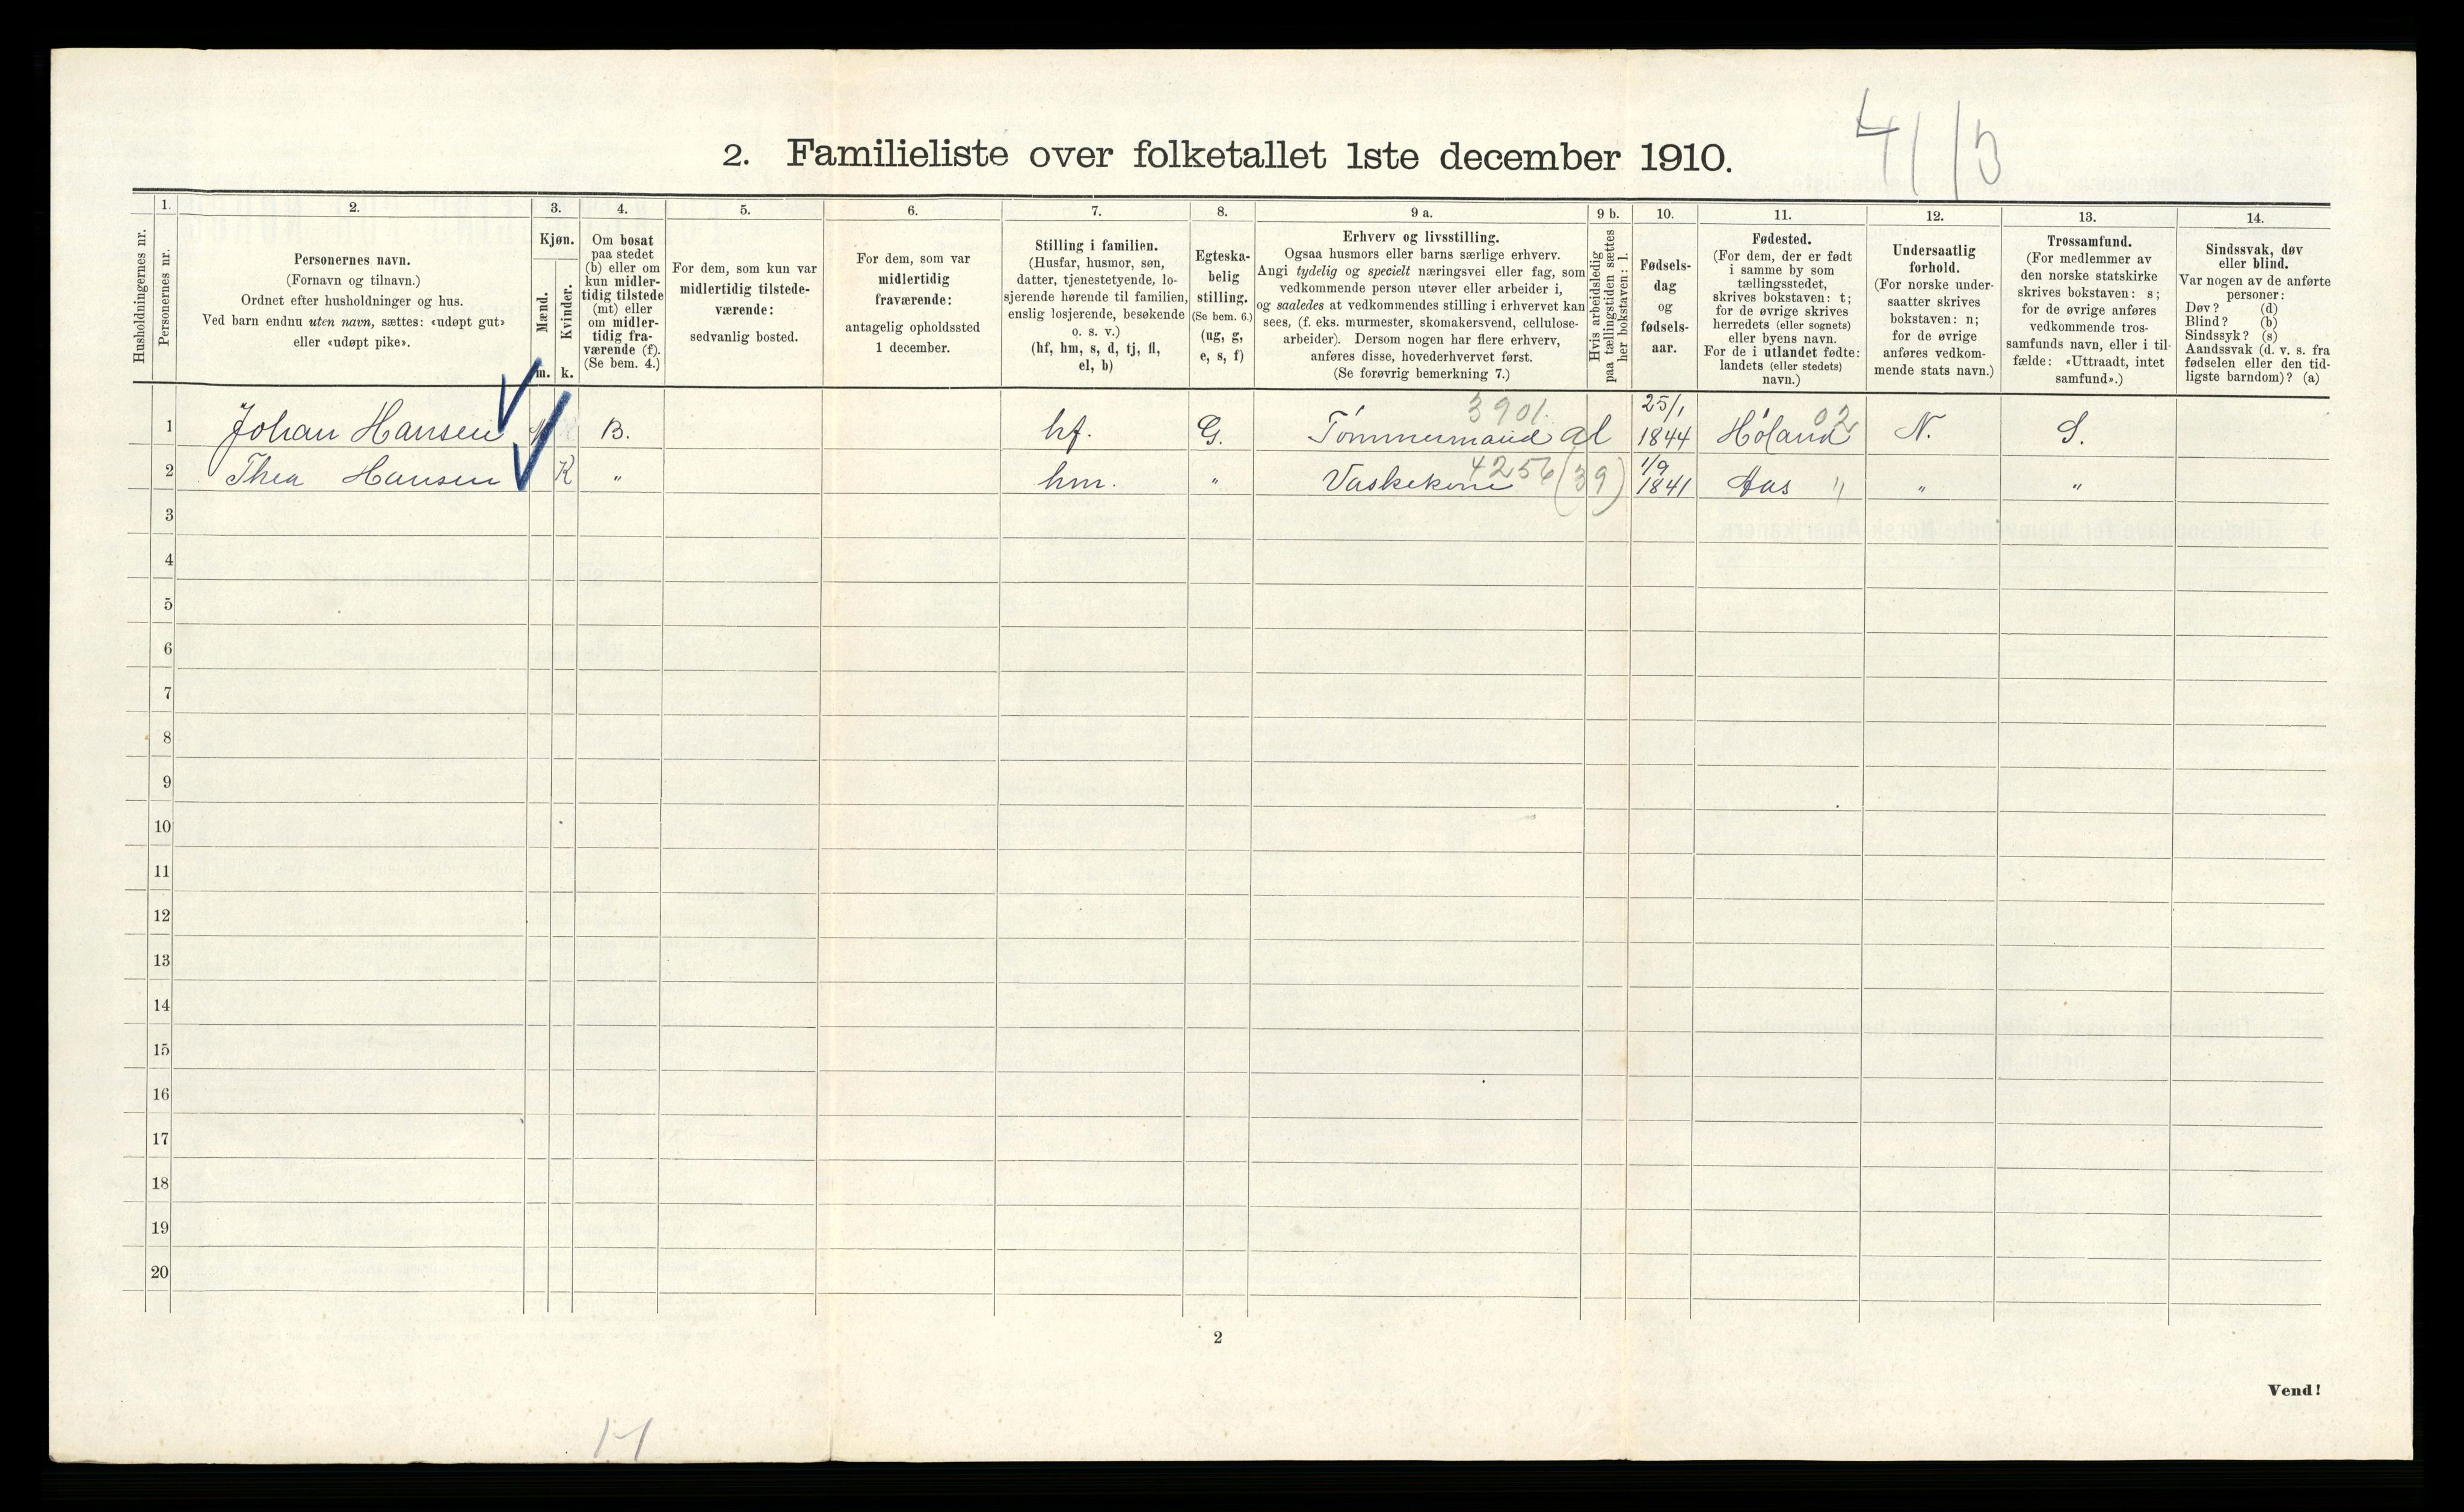 4 1 / 3
2. Familieliste over folketallet 1ste december 1910.
Husholdningernes nr.
1.
Personernes nr.
2.
Personernes navn.
(Fornavn og tilnavn.)
Ordnet efter husholdninger og hus.
Ved barn endnu uten navn, sættes: «udøpt gut»
eller «udøpt pike».
3.
Kjøn.
Mænd.
Kvinder.
m. k.
4.
Om bosat
paa stedet
(b) eller om
kun midler-
tidig tilstede
(mt) eller
om midler-
tidig fra-
værende (f).
(Se bem. 4.)
5.
For dem, som kun var
midlertidig tilstede-
værende:
sedvanlig bosted.
6.
For dem, som var
midlertidig
fraværende:
antagelig opholdssted
1 december.
7.
Stilling i familien.
(Husfar, husmor, søn,
datter, tjenestetyende, lo-
sjerende hørende til familien,
enslig losjerende, besøkende
o. s. v.)
(hf, hm, s, d, tj, fl,
el, b)
8.
Egteska-
belig
stilling.
(Se bem. 6.)
(ug, g,
e, s, f)
9 a.
Erhverv og livsstilling.
Ogsaa husmors eller barns særlige erhverv.
Angi tydelig og specielt næringsvei eller fag, som
vedkommende person utøver eller arbeider i,
og saaledes at vedkommendes stilling i erhvervet kan
sees, (f. eks. murmester, skomakersvend, cellulose-
arbeider). Dersom nogen har flere erhverv,
anføres disse, hovederhvervet først.
(Se forøvrig bemerkning 7.)
9 b.
Hvis arbeidsledig
paa tællingstiden sættes
her bokstaven: l.
10.
Fødsels-
dag
og
fødsels-
aar.
11.
Fødested.
(For dem, der er født
i samme by som
tællingsstedet,
skrives bokstaven: t;
for de øvrige skrives
herredets (eller sognets)
eller byens navn.
For de i utlandet fødte:
landets (eller stedets)
navn.)
12.
Undersaatlig
forhold.
(For norske under-
saatter skrives
bokstaven: n;
for de øvrige
anføres vedkom-
mende stats navn.)
13.
Trossamfund.
(For medlemmer av
den norske statskirke
skrives bokstaven: s;
for de øvrige anføres
vedkommende tros-
samfunds navn, eller i til-
fælde: «Uttraadt, intet
samfund».)
14.
Sindssvak, døv
eller blind.
Var nogen av de anførte
personer:
Døv? (d)
Blind? (b)
Sindssyk? (s)
Aandssvak (d. v. s. fra
fødselen eller den tid-
ligste barndom)? (a)
1 Johan Hansen B. hf. G. Tømmermand 3901. al 25/1 1844 Høland 02 N. S.
2 Thea Hansen K " hm. " Vaskekone 4256 (39) 1/9 1841 Aas " " "
3
4
5
6
7
8
9
10
11
12
13
14
15
16
17
18
19
20
2
Vend!